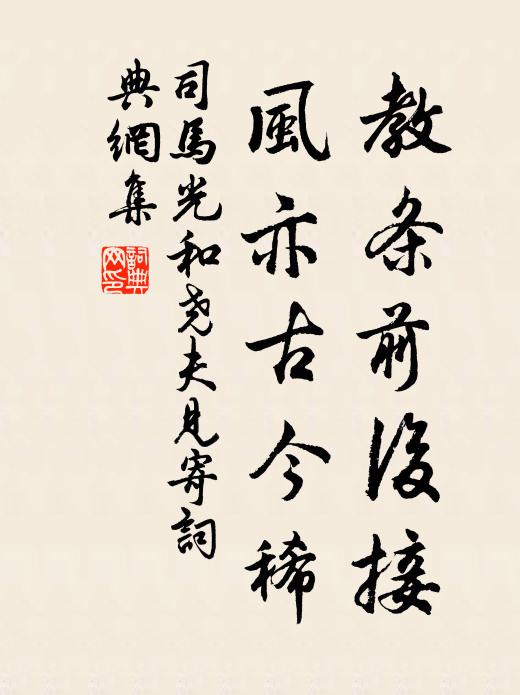 教条前後接
風亦古今稀
司馬光和尧夫见寄詞
典網集
詞典网印